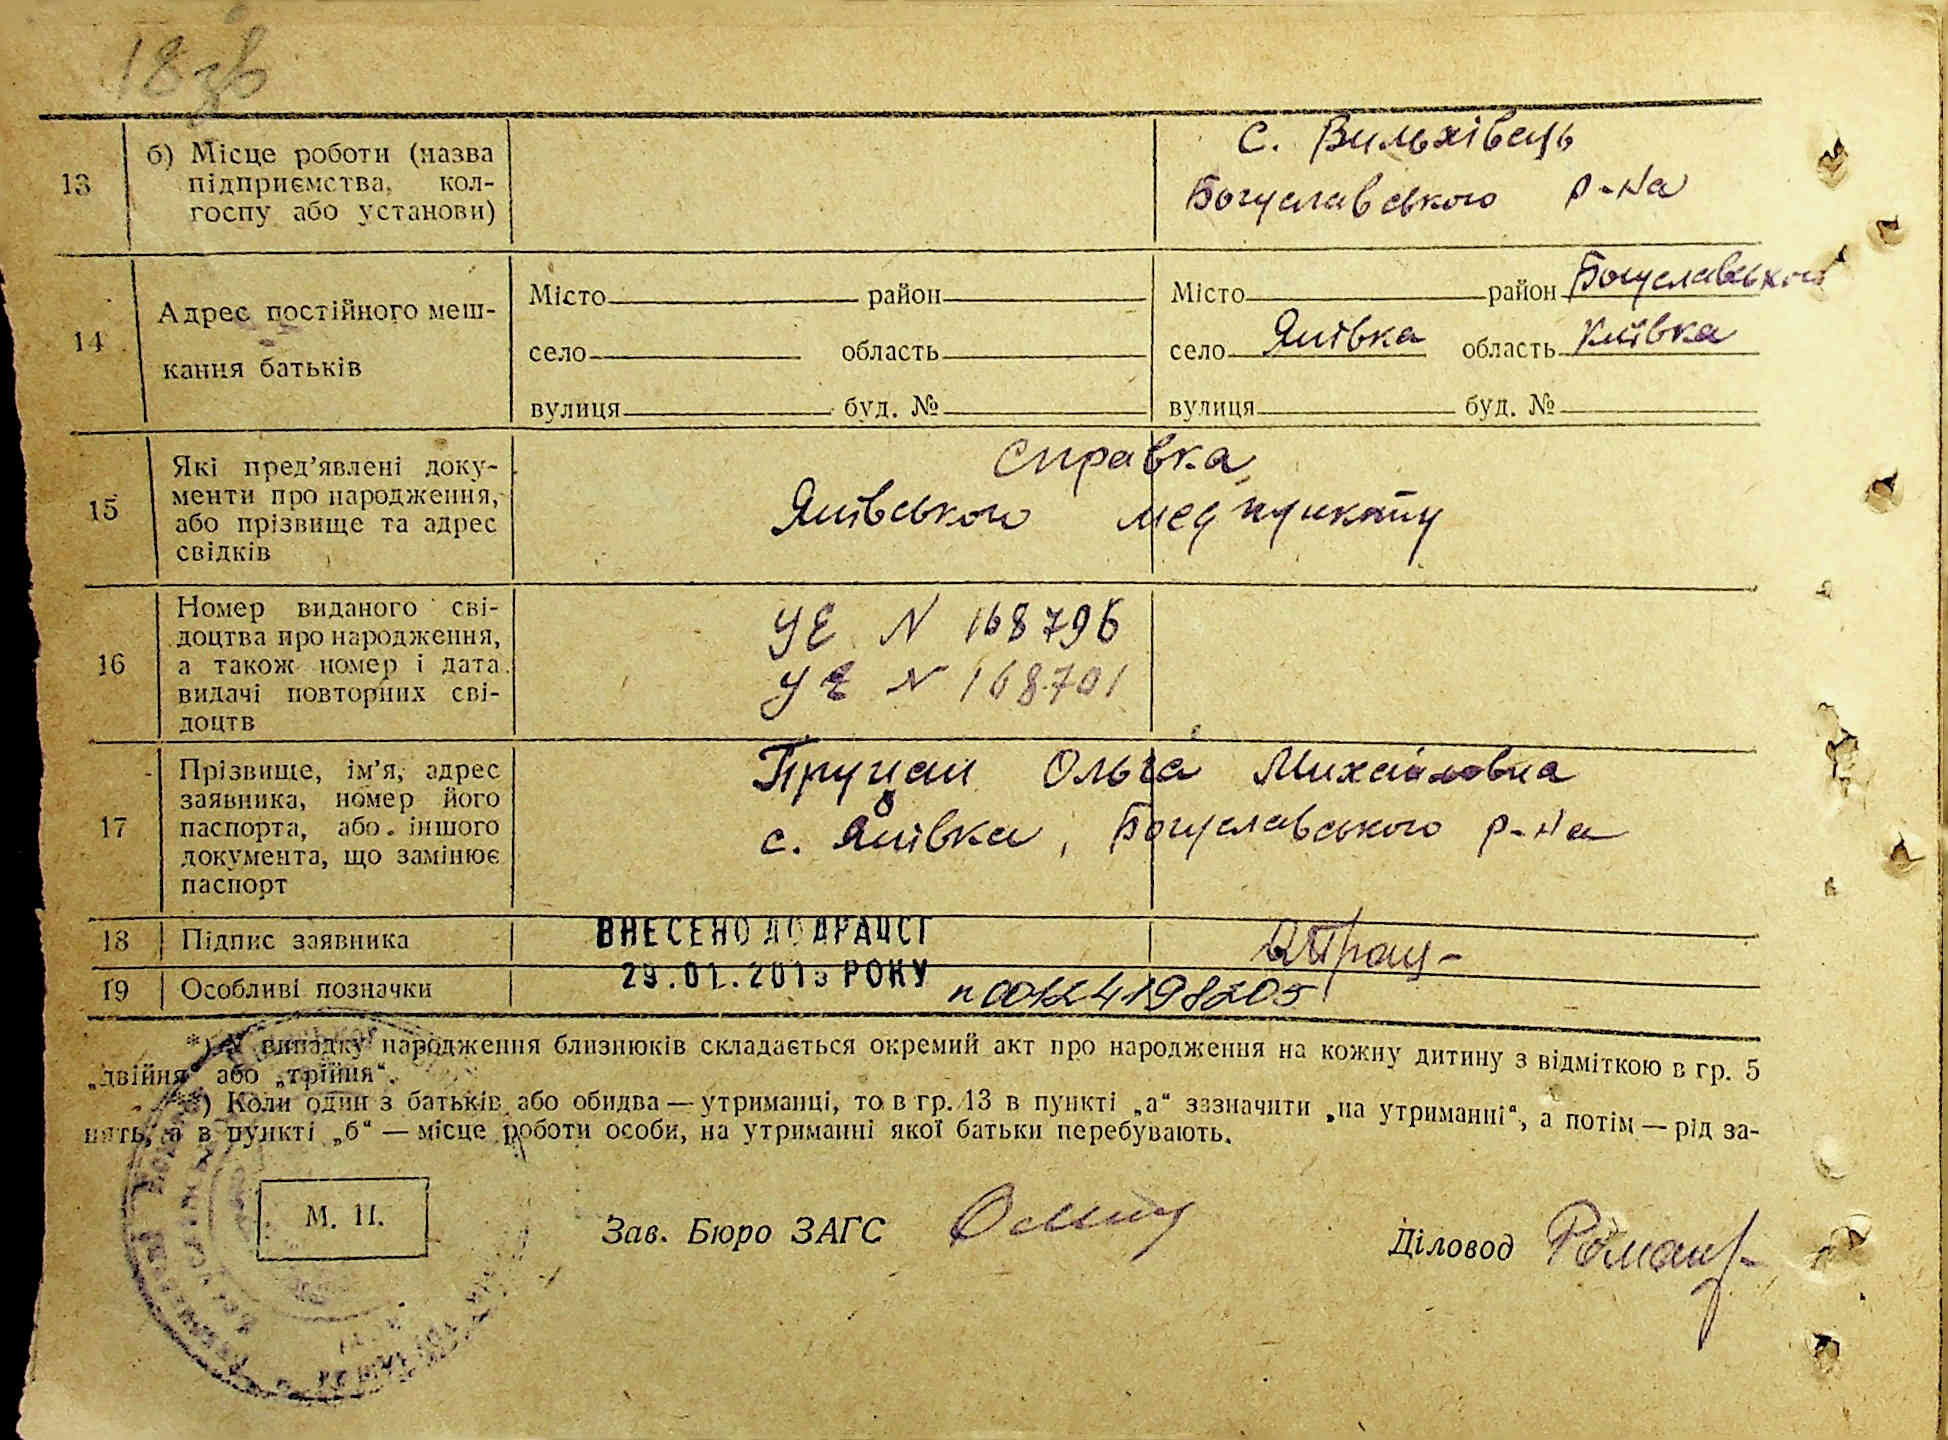 18 зв
13
б) Місце роботи (назва
підприємства, кол-
госпу або установи)
С. Вильхівець
Богуславського р-на
14
Адрес постійного меш-
кання батьків
Місто район
село область
вулиця буд. №
Місто район Богуславського
село Яцівка область Київка
вулиця буд. №
15
Які пред’явлені доку-
менти про народження,
або прізвище та адрес
свідків
Справка
медпункту
16
Номер виданого сві-
доцтва про народження,
а також номер і дата
видачі повторних сві-
доцтв
УЕ N 168796
УЕ N 168701
17
Прізвище, ім’я, адрес
заявника, номер його
паспорта, або іншого
документа, що замінює
паспорт
Ольга Михайловна
с. Яцівка, Богуславського р-на
18
Підпис заявника
ВНЕСЕНО ДО ДРАЦСГ
19
Особливі позначки
29.01.2013 РОКУ
п 00124198205
*) У випадку народження близнюків складається окремий акт про народження на кожну дитину з відміткою в гр. 5
„двійня“ або „трійня“.
**) Коли один з батьків або обидва — утриманці, то в гр. 13 в пункті „а“ зазначити „на утриманні“, а потім — рід за-
нять, а в пункті „б“ — місце роботи особи, на утриманні якої батьки перебувають.
М. П.
Зав. Бюро ЗАГС
Діловод